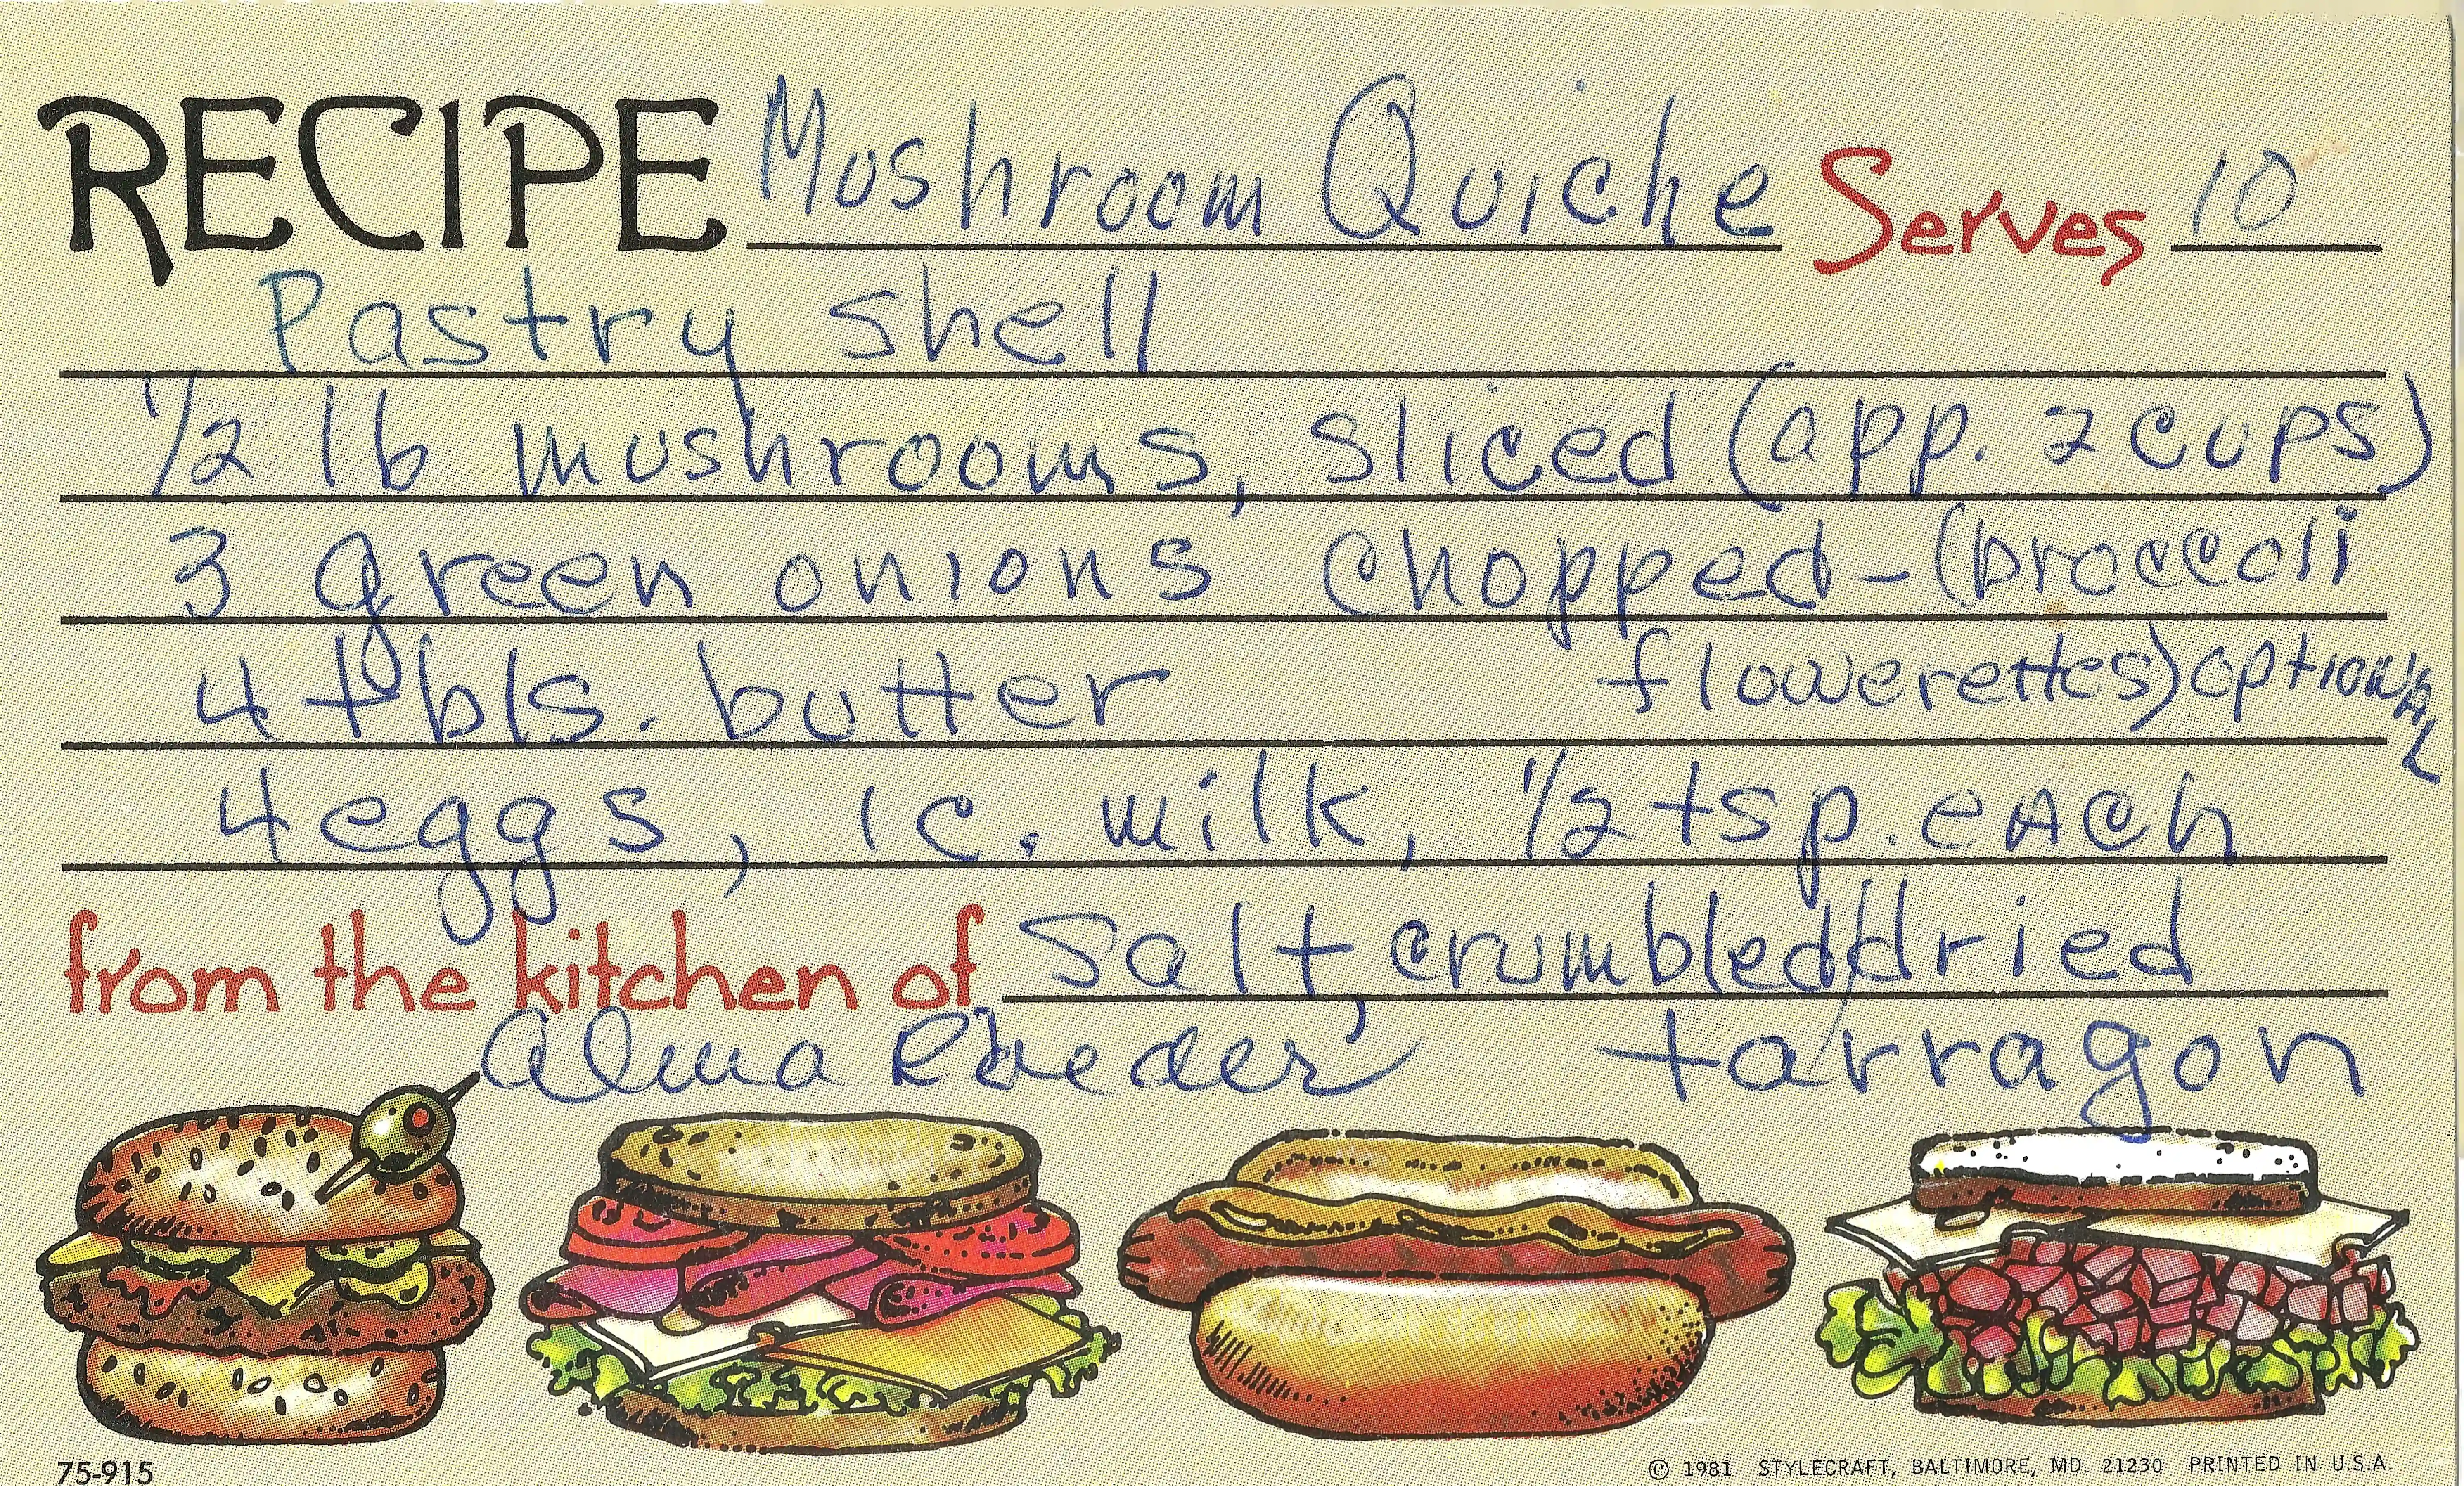 RECIPE Mushroom Quiche Serves 10
Pastry shell
1/2 lb mushrooms, sliced (app. 2 cups)
3 green onions chopped - (broccoli
4 tbls. butter flowerettes) optional
4 eggs, 1 c. milk, 1/2 tsp. each
from the kitchen of salt, crumbled/dried
Alma tarragon
75-915 © 1981 STYLECRAFT, BALTIMORE, MD. 21230 PRINTED IN U.S.A.